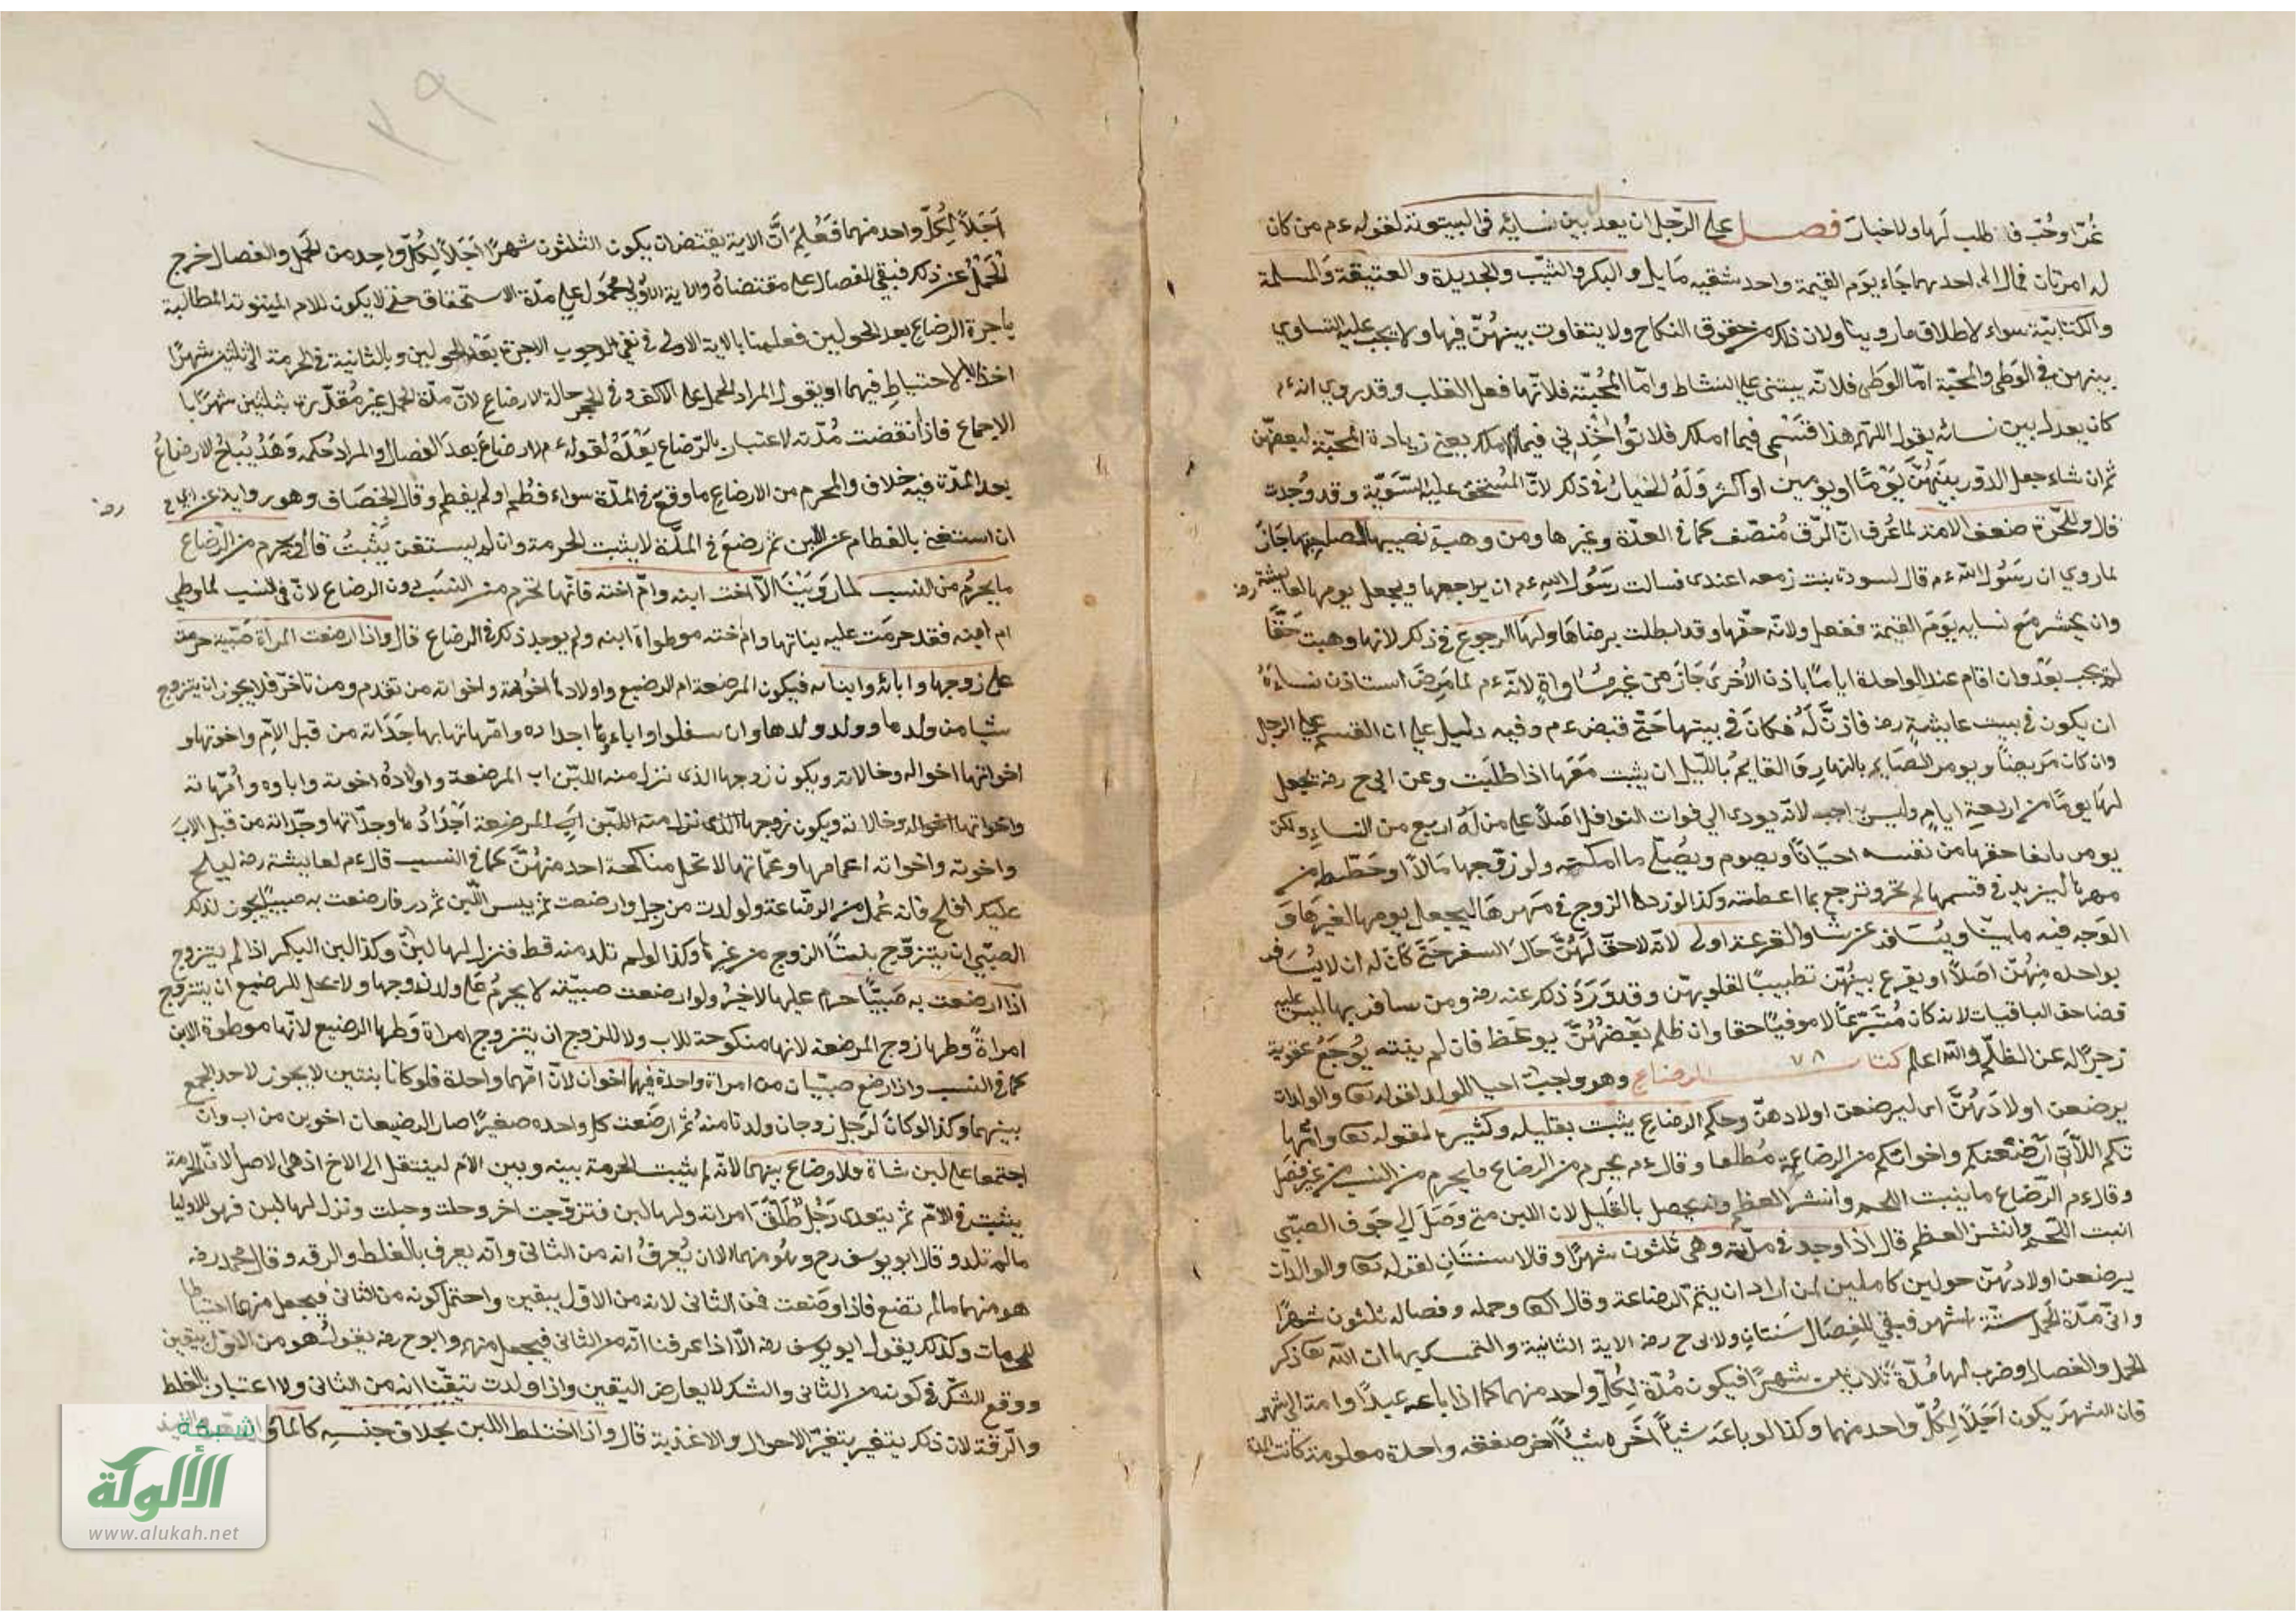 عُنّ او جُبّ فلا طلب لها ولا خيار فصل على الرّجل ان يعدل بين نسائه فى البيتوتة لقوله ءم من كان
له امرتان فمال الى احديهما جاء يوم القيمة واحد شقيه مايل والبكر والثيّب والجديدة والعتيقة والمسلمة
والكتابيّة سواء لاطلاق ما روينا ولان ذلك من حقوق النكاح ولا يتفاوت بينهنّ فيها ولا يجب عليه التساوي
بينهن فى الوطى والمحبّة امّا الوطى فلانّه يبتنى على النشاط وامّا المحبّة فلانّها فعل القلب وقد روي انه ءم
كان يعدل بين نسائه يقول اللّهم هذا قسمى فيما املك فلا تؤاخذنى فيما لا املك يعنى زيادة المحبّة لبعضهنّ
ثم ان شاء جعل الدّور بينهنّ يومًا او يومين او اكثر وله الخيار فى ذلك لانّ المستحق عليه السّويّة وقد وجدت
قال وللحرّة ضعف الامة لما عُرف انّ الرّق مُنصّف كما فى العدّة وغيرها ومن وهبت نصيبها لصاحبتها جاز
لما روي ان رسول الله ءم قال لسودة بنت زمعه اعتدى فسالت رسول الله ءم ان يراجعها ويجعل يومها لعايشة رضه
وان يحشر مع نسايه يوم القيمة ففعل ولانّه حقّها وقد ابطلت برضاها ولها الرجوع فى ذلك لانها وهبت حقًّا
لم يجب بعدُ وان اقام عند الواحدة ايامًا باذن الأخرى جاز من غير مساواةٍ لانّه ءم لما مرض استاذن نساءهُ
ان يكون فى بيت عايشة رضه فاذنّ له فكان فى بيتها حتّى قبض ءم وفيه دليل على ان القسم على الرجل
وان كان مريضًا ويومر الصّايم بالنهار والقايم بالليل ان يثبت معها اذا طلبت وعن ابى ح رضه يجعل
لها يومًا من اربعة ايام وليس بواجب لانّه يودى الي فوات النوافل اصلًا على من له اربع من النساء ولكن
يومر بايفا حقها من نفسه احيانًا ويصوم ويصلى ما امكنه ولو زوجها مالًا او حطت من
مهرها ليزيد فى قسمها لم تجز وترجع بما اعطته وكذا لو زدها الزوج فى مهرها ليجعل يومها لغيرها و
الوجه فيه ما بينّا ويسافر بمن شا والقرعة اولى لانّه لا حقّ لهنّ حال السفر حتى كان له ان لا يسافر
بواحدة منهنّ اصلًا او يقرع بينهنّ تطييبًا لقلوبهنّ وقد ورد ذلك عنه رضه ومن سافر بها ليس عليه
قضا حق الباقيات لانه كان متبرّعًا لا موفيًا حقا وان ظلم بعضهنّ يوعظ فان لم ينته يوجع عقوبة
زجرًا له عن الظّلم والله اعلم كتاب الرضاع ٧٨ وهو واجب احيا للولد لقوله تعا والوالدات
يرضعن اولادهنّ اى ليرضعن اولادهنّ وحكم الرضاع يثبت بقليله وكثيره لقوله تعا وامّها
تكم اللّاتى ارضعنكم واخواتكم من الرضاعة مطلقا وقال ءم يحرم من الرضاع ما يحرم من النسب من غير فصل
وقال ءم الرّضاع ما ينبت اللحم وانشر العظم وانه يحصل بالقليل لان اللبن متى وصل الي جوف الصبّي
انبت اللّحم وانشز العظم قال اذا وجد فى مدّته وهى ثلثون شهرًا وقالا سنتان لقوله تعا والوالدات
يرضعن اولادهنّ حولين كاملين لمن اراد ان يتمّ الرضاعة وقال تعا وحمله وفصاله ثلثون شهرًا
وادنى مدّة الحمل ستّة اشهر فبقي للفصال سنتان ولابى ح رضه الاية الثانية والتمسك بها ان الله تعا ذكر
الحمل والفصال وضرب لهما مدّة ثلاثين شهرًا فيكون مُدّة لكلّ واحد منهما كما اذا باع عبدًا وامة الى شهر
فان الشهر يكون اجلًا لكلّ واحد منهما وكذا لو باعه شيًا اخر وشيًا اخر صفقه واحدة معلومة كانت المدة
١٢٩
اَجَلاً لِكُلّ واحد منهما فعُلم انّ الاية يقتضى ان يكون الثلثون شهرًا اجلًا لكلّ واحد من الحمل والفصال خرج
الحمل عن ذلك فبقي الفصال على مقتضاهُ والاية الاولى محمول على مدّة الاستحقاق حتى لا يكون للام المبتوتة المطالبة
باجرة الرضاع بعد الحولين فعلمنا بالاية الاولى فى نفى الوجوب الاجرة بعد الحولين وبالثانية فى الحرمة الى ثلثين شهرًا
اخذًا بالاحتياط فيهما او يقول المراد الحمل على الاكف وفى الحجر حالة الارضاع لانّ مدّة الحمل غير مُقدّرة بثلثين شهرًا با
الاجماع فاذا نقضت مُدّته لا اعتبار بالرّضاع بعدهُ لقوله ءم لا رضاع بعد الفصال والمراد حكمه وهذا يُباحُ الارضاعُ
بعد المدّة فيه خلاف والمحرم من الارضاع ما وقع فى المدّة سواء فُطم او لم يفطم وقال الخصّاف وهو رواية عن ابى ح رضه
ان استغنى بالفطام عن اللبن ثم رضع فى المدّة لا يثبت الحرمة وان لم يستغن يثبت قال يحرم من الرّضاع
ما يحرُم من النسب لما روينا الّا اخت ابنه وامّ اخته فانّها تحرم من النسب دون الرضاع لانّ فى النسب لما وطي
ام ابنه فقد حرمت عليه بناتها وام اخته موطواة ابنه ولم يوجد ذلك فى الرضاع قال واذا ارضعت المراة صبّية حرمت
على زوجها وابائه وابنائه فيكون المرضعة ام الرضيع واولادها اخوته واخواته من تقدم ومن تاخّر فلا يجوز ان يتزوج
شيا من ولدها وولد ولدها وان سفلوا واباءها اجداده وامّهاتها جدّاته من قبل الامّ واخوتها و
اخواتها اخواله وخالاته ويكون زوجها الذى نزل منه اللبّن اب المرضعة واولادهُ اخوته واباوه وأمّهاته
واخواتها اخواله وخالاته ويكون زوجها الذى نزل منه اللبّن اب المرضعة اجدادُها وجدّاتها وجدّاته من قبل الاب
واخوته واخواته اعمامها وعمّاتها لا تحل مناكحة احد منهنّ كما فى النسب قال ءم لعايشة رضه ليلج
عليك افلح فانه عمّك من الرضّاعة ولو لدت من رجل وارضعت ثم يبس اللّبن ثم در فارضعت به صبيًا يجوز لذلك
الصبّي ان يتزوّج بنت الزوج من غيرها وكذا لو لم تلد منه قط فنزل لها لبنٌ وكذا لبن البكر اذا لم يتزوج
اذا ارضعت به صبيًّا حرم عليها لا غيرُ ولو ارضعت صبيّة لا يحرمُ على ولد زوجها ولا يحل للرضيع ان يتزوّج
امراةً وطيها زوج المرضعة لانها منكوحة للاب ولا للزوج ان يتزوج امراة وطيها الرضيع لانّها موطوة الابن
كما فى النسب واذا رضع صبيّان من امراة واحدة فهما اخوان لانّ امّهما واحدة فلو كانا بنتين لا يجوز لاحد الجمع
بينهما وكذا لو كان لرجل زوجتان ولدتا منهُ ثم ارضعت كل واحده صغيرًا صار الرضيعان اخوين من اب وان
اجتمعا على لبن شاة فلا رضاع بينهما لانّه لم يثبت الحرمة بينه وبين الام لينتقل الى الاخ اذ هى الاصل لانّ الحرمة
يثبت فى الامّ ثم يتعدى رجُلٌ طلّق امراته ولها لبن فتزوّجت اخر وحلت وحبلت ونزل لها لبن فهو للاول
مالم تلد وقال ابو يوسف رح وهو منهما الا ان يُعرفُ انه من الثانى وانه يعرف بالغلظ والرقه وقال محمد رضه
هو منهما مالم تضع فاذا وضعت فمن الثانى لانه من الاوّل بيقين واحتمل كونه من الثانى فيجعل منهما احتياطا
للحرمات وكذلك يقول ابو يوسف رضه الّا اذا عرفنا انّه من الثانى فيجعل منه وابو ح رضه يقول هو من الاوّل بيقين
ووقع الشكّ فى كونه من الثانى والشك لا يعارض اليقين واذا ولدت تيقّنّا انه من الثانى ولا اعتبار بالغلظ
والرّقة لان ذلك يتغير بتغيّر الاحوال والاغذية قال واذا اختلط اللبن بخلاف جنسه كالماء
شبكة
الألوكة
www.alukah.net